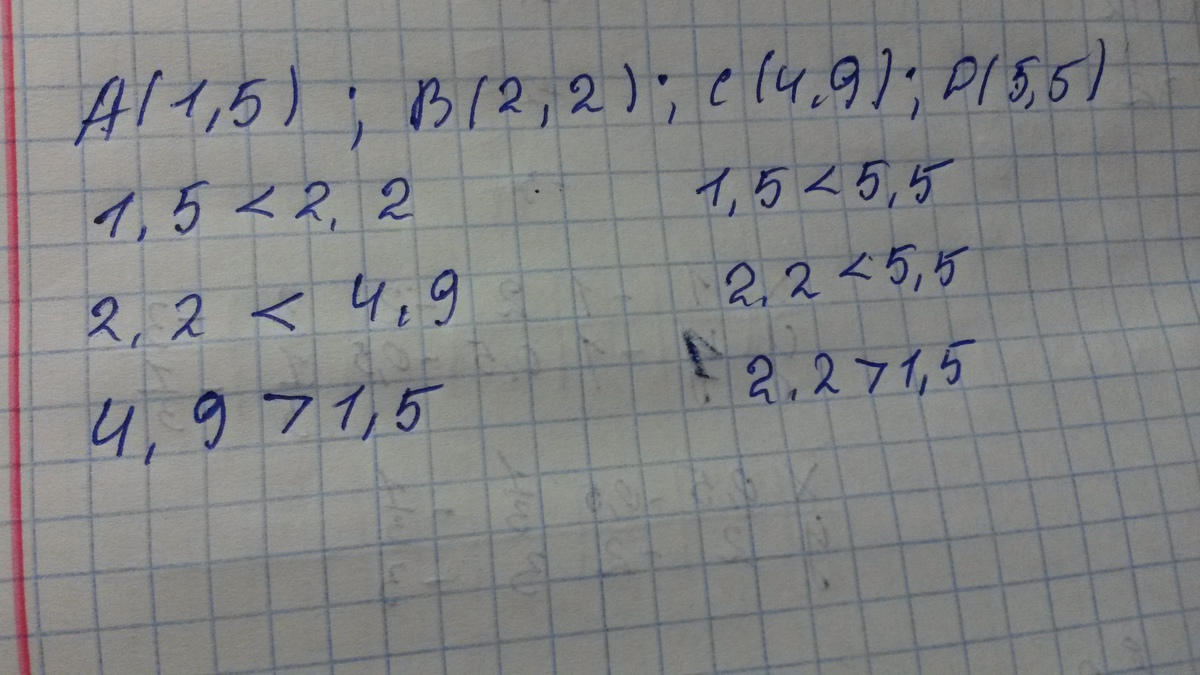 A(1,5) ; B(2,2) ; C(4,9) ; D(5,5)
1,5 < 2,2
2,2 < 4,9
4,9 > 1,5
1,5 < 5,5
2,2 < 5,5
2,2 > 1,5